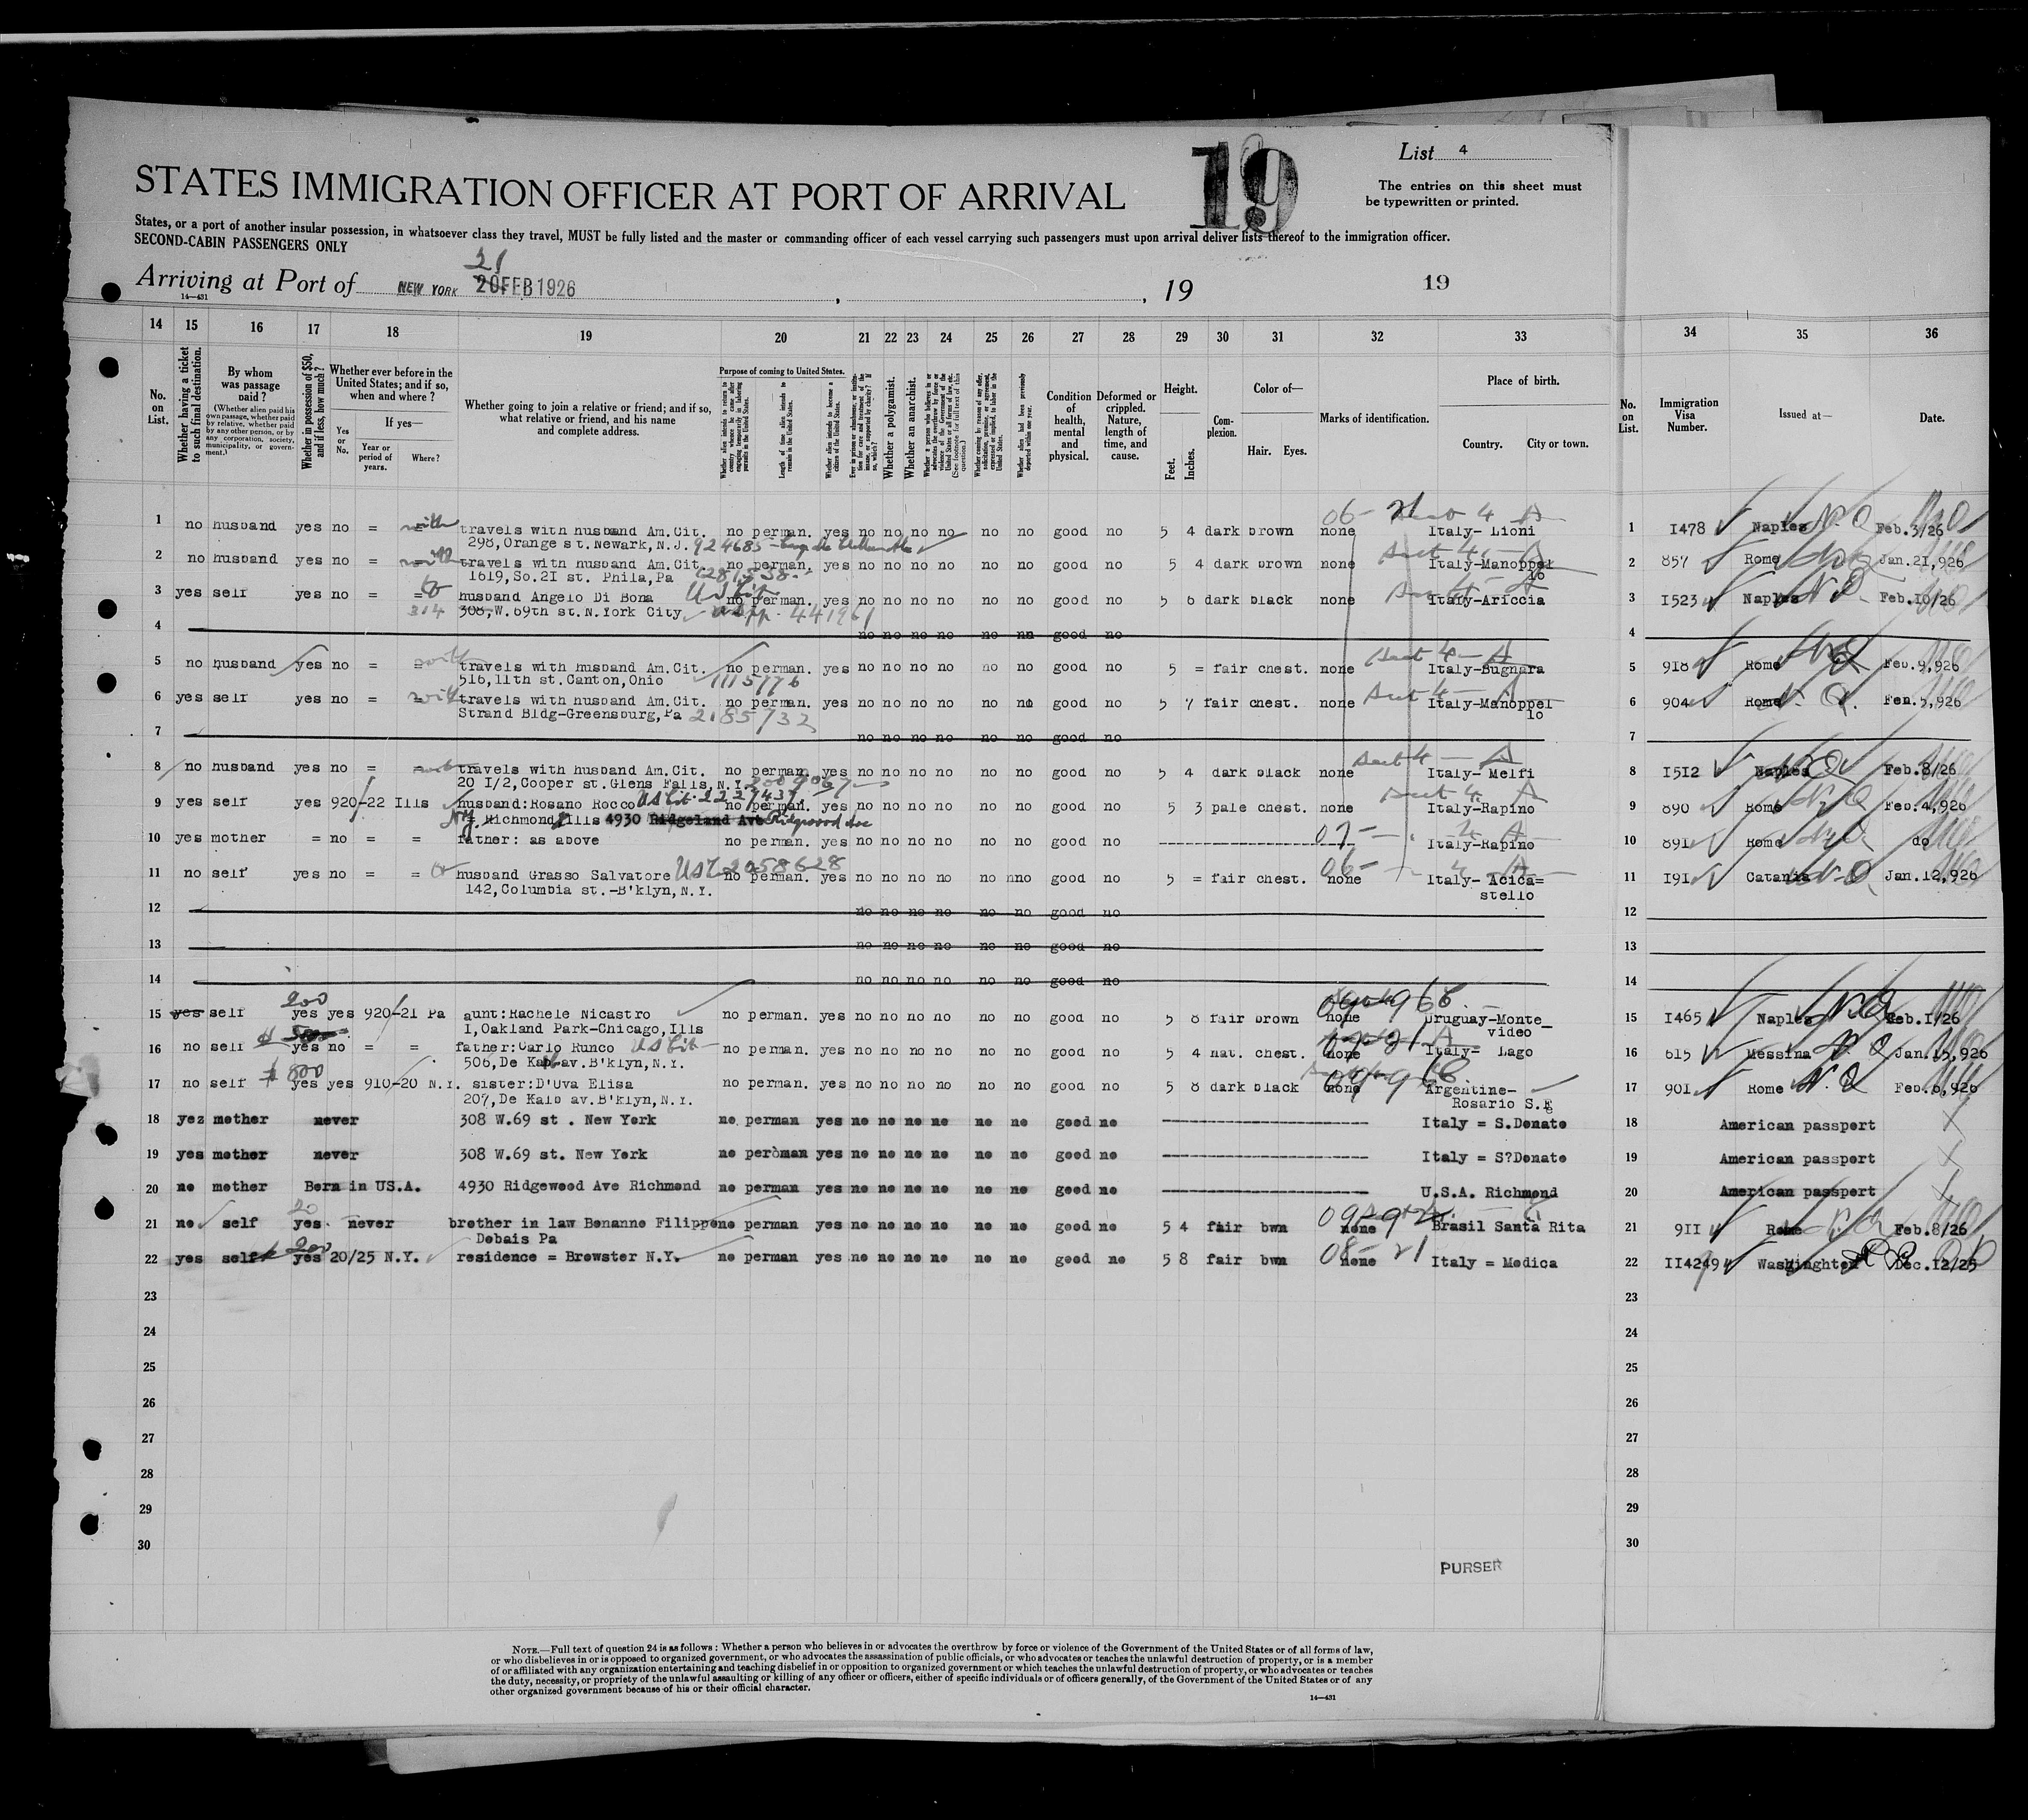 19
List 4
STATES IMMIGRATION OFFICER AT PORT OF ARRIVAL
The entries on this sheet must
be typewritten or printed.
States, or a port of another insular possession, in whatsoever class they travel, MUST be fully listed and the master or commanding officer of each vessel carrying such passengers must upon arrival deliver lists thereof to the immigration officer.
SECOND-CABIN PASSENGERS ONLY
21
Arriving at Port of NEW YORK 20 FEB 1926 , , 19 19
14—431
14 15 16 17 18 19 20 21 22 23 24 25 26 27 28 29 30 31 32 33 34 35 36
No. on List.
Whether having a ticket to such final destination.
By whom was passage paid?
(Whether alien paid his own passage, whether paid by relative, whether paid by any other person, or by any corporation, society, municipality, or government.)
Whether in possession of $50, and if less, how much?
Whether ever before in the United States; and if so, when and where?
If yes—
Yes or No.
Year or period of years.
Where?
Whether going to join a relative or friend; and if so, what relative or friend, and his name and complete address.
Purpose of coming to United States.
Length of time alien intends to remain in the United States.
Whether alien intends to become a citizen of the United States.
Whether a polygamist.
Whether an anarchist.
Condition of health, mental and physical.
Deformed or crippled. Nature, length of time, and cause.
Height.
Feet. Inches.
Complexion.
Color of—
Hair. Eyes.
Marks of identification.
Place of birth.
Country. City or town.
No. on List.
Immigration Visa Number.
Issued at—
Date.
1 no husband yes no = with travels with husband Am.Cit. no perman. yes no no no no no no good no 5 4 dark brown none Italy- Lioni 1 I478 Naples Feb.3/26
298, Orange st. Newark, N.J. 924685
2 no husband yes no = travels with husband Am.Cit. no perman. yes no no no no no no good no 5 4 dark brown none Italy-Manoppel 2 857 Rome Jan.2I,926
1619, So.2I st. Phila, Pa lo
3 yes self yes no = = husband Angelo Di Bona US Cit no perman. yes no no no no no no good no 5 6 dark black none Italy-Ariccia 3 I523 Naples Feb.10/26
314 308, W. 69th st. N.York City 441961
4 no no no no no no good no 4
5 no husband yes no = with travels with husband Am.Cit. no perman. yes no no no no no no good no 5 = fair chest. none Italy-Bugnara 5 918 Rome Feb.9,926
516, 11th st. Canton, Ohio 1115776
6 yes self yes no = with travels with husband Am.Cit. no perman. yes no no no no no no good no 5 7 fair chest. none Italy-Manoppel 6 904 Rome Feb.5,926
Strand Bldg-Greensburg, Pa 2185732 lo
7 no no no no no no good no 7
8 no husband yes no = travels with husband Am.Cit. no perman. yes no no no no no no good no 5 4 dark black none Italy- Melfi 8 I5I2 Naples Feb.8/26
20 I/2, Cooper st. Glens Falls, N.Y.
9 yes self yes 920-22 Ills husband: Rosano Rocco US Cit. 2227437 no perman. yes no no no no no no good no 5 3 pale chest. none Italy-Rapino 9 890 Rome Feb.4,926
Richmond Ills 4930 Ridgeland Ave Ridgewood Ave
10 yes mother = no = = father: as above no perman. yes no no no no no no good no Italy-Rapino 10 89I Rome do
11 no self yes no = = husband Grasso Salvatore 2058628 no perman. yes no no no no no nno good no 5 = fair chest. none Italy- Acica= 11 I9I Catania Jan.12,926
142, Columbia st.-B'klyn, N.Y. stello
12 no no no no no no good no 12
13 no no no no no no good no 13
14 no no no no no no good no 14
200
15 yes self yes yes 920-21 Pa aunt: Rachele Nicastro no perman. yes no no no no no no good no 5 8 fair brown none Uruguay-Monte_ 15 I465 Naples Feb.I/26
I, Oakland Park-Chicago, Ills video
16 no self yes no = = father: Carlo Runco US Cit no perman. yes no no no no no no good no 5 4 nat. chest. none Italy- Lago 16 615 Messina Jan.15,926
506, De Kalb av. B'klyn, N.Y.
$ 800
17 no self yes yes 910-20 N.Y. sister: D'Uva Elisa no perman. yes no no no no no no good no 5 8 dark black none Argentine- 17 90I Rome Feb.6,926
207, De Kalb av. B'klyn, N.Y. Rosario S.F
18 yez mother never 308 W.69 st . New York no perman yes no no no no no no good no Italy = S.Donato 18 American passport
19 yes mother never 308 W.69 st. New York no peroman yes no no no no no no good no Italy = S?Donato 19 American passport
20 no mother Born in US.A. 4930 Ridgewood Ave Richmond no perman yes no no no no no no good no U.S.A. Richmond 20 American passport
20
21 no self yes. never brother in law Bonanno Filippo no perman yes no no no no no no good no 5 4 fair bwn none Brasil Santa Rita 21 9II Rome Feb.8/26
Debais Pa
200
22 yes self yes 20/25 N.Y. residence = Brewster N.Y. no perman yes no no no no no no good no 5 8 fair bwn none Italy = Modica 22 II4249 Washinghton Dec.I2/25
23 23
24 24
25 25
26 26
27 27
28 28
29 29
30 30
PURSER
NOTE.—Full text of question 24 is as follows: Whether a person who believes in or advocates the overthrow by force or violence of the Government of the United States or of all forms of law,
or who disbelieves in or is opposed to organized government, or who advocates the assassination of public officials, or who advocates or teaches the unlawful destruction of property, or is a member
of or affiliated with any organization entertaining and teaching disbelief in or opposition to organized government or which teaches the unlawful destruction of property, or who advocates or teaches
the duty, necessity, or propriety of the unlawful assaulting or killing of any officer or officers, either of specific individuals or of officers generally, of the Government of the United States or of any
other organized government because of his or their official character.
14—431